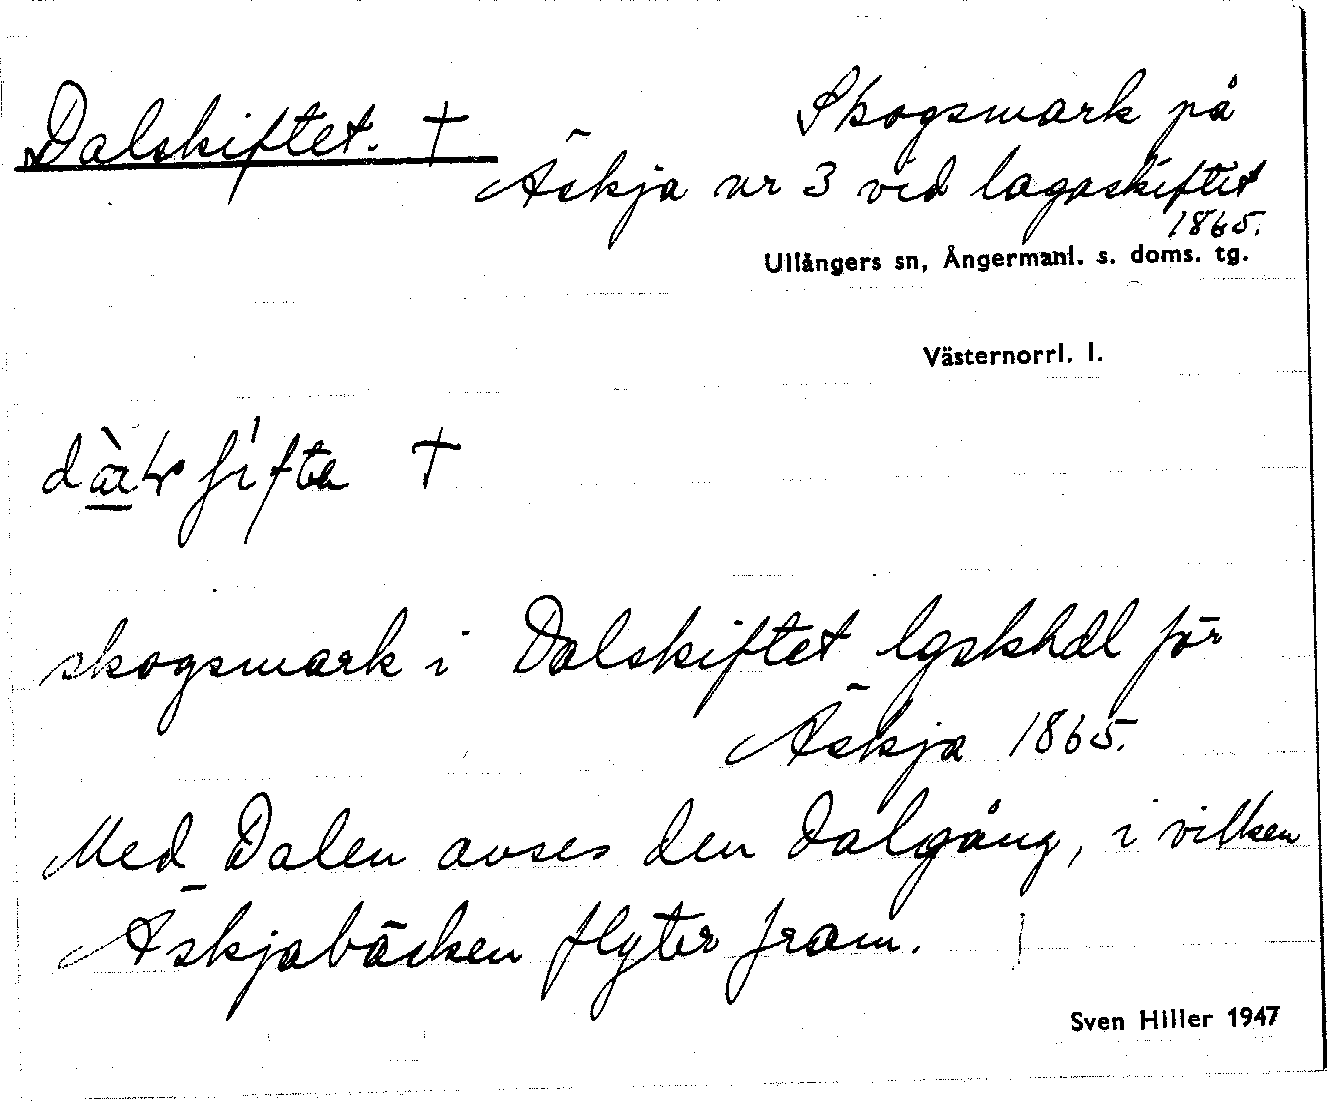 Dalskiftet. †
Skogsmark på
Äskja nr 3 vid lagaskiftet
1865.
Ullångers sn, Ångermanl. s. doms. tg.
Västernorrl. l.
†
skogsmark i Dalskiftet lgskhdl för
Äskja 1865.
Med Dalen avses den dalgång, i vilken
Äskjabäcken flyter fram.
Sven Hiller 1947